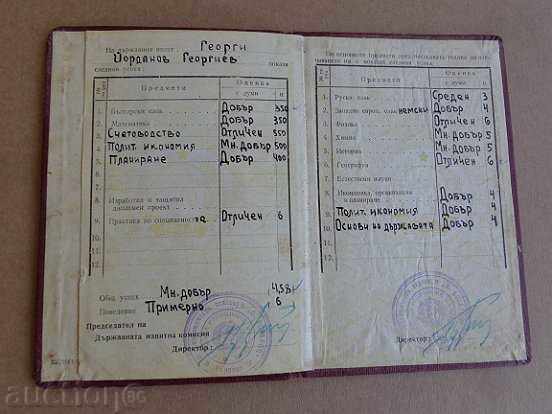 На държавния изпит : Георги
Йорданов Георгиев показа
следния успех :
Предмети
Оценка
с думи
Български език
Добър 350
Математика
Добър 350
Счетоводство Отличен 550
Полит. икономия Мн. добър 500
Планиране Добър 400
Изработка и защита
дипломен проект
Практика по специалността Отличен 6
Общ успех Мн. добър 4,58
Поведение Примерно 6
Председател на
Държавната изпитна комисия
Директор :
Предмети
Оценка
с думи
Руски език Среден 3
Западно европ. език немски Добър 4
Физика Отличен 6
Химия Мн. добър 5
История Мн. добър 5
География Отличен 6
Естествени науки
Икономика, организация
и планиране Добър 4
Полит. икономия Добър 4
Основи на държавата Добър 4
Директор :
aukcion.bg